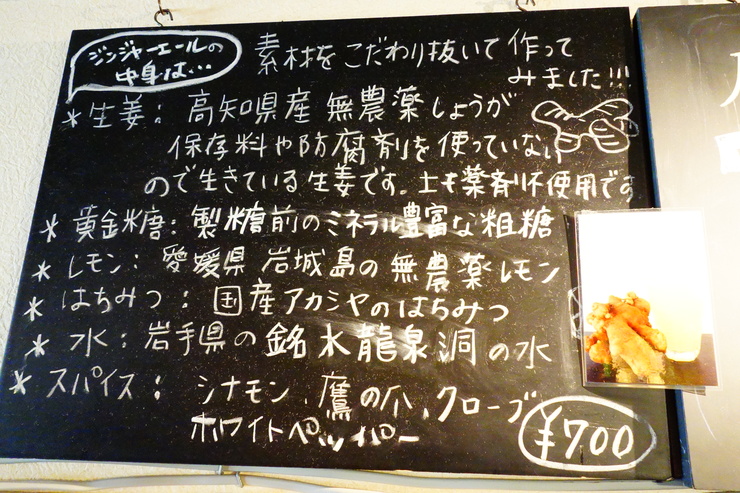 ジンジャーエールの
中身は…
素材をこだわり抜いて作って
みました!!!
*生姜：高知県産無農薬しょうが
保存料や防腐剤を使っていない
ので生きている生姜です。土も薬剤不使用です
*黄金糖：製糖前のミネラル豊富な粗糖
*レモン：愛媛県岩城島の無農薬レモン
*はちみつ：国産アカシヤのはちみつ
*水：岩手県の銘水龍泉洞の水
*スパイス：シナモン、鷹の爪、クローブ
ホワイトペッパー
¥700